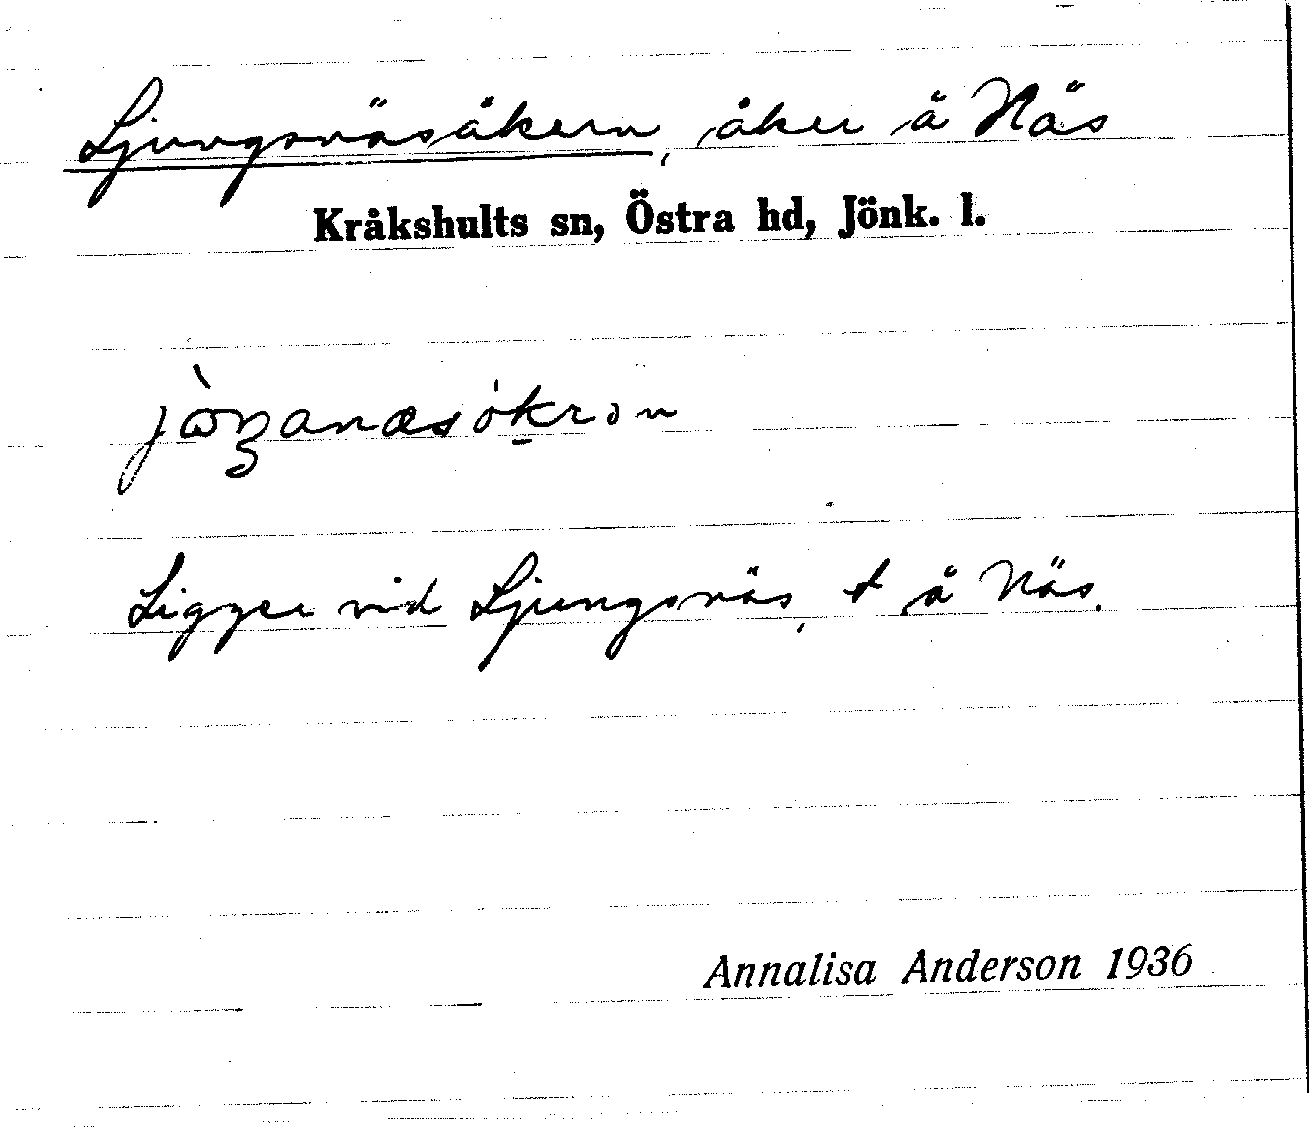 Ljungsnäsåkern, åker å Näs
Kråkshults sn, Östra hd, Jönk. l.
Ligger vid Ljungsnäs, t å Näs.
Annalisa Anderson 1936